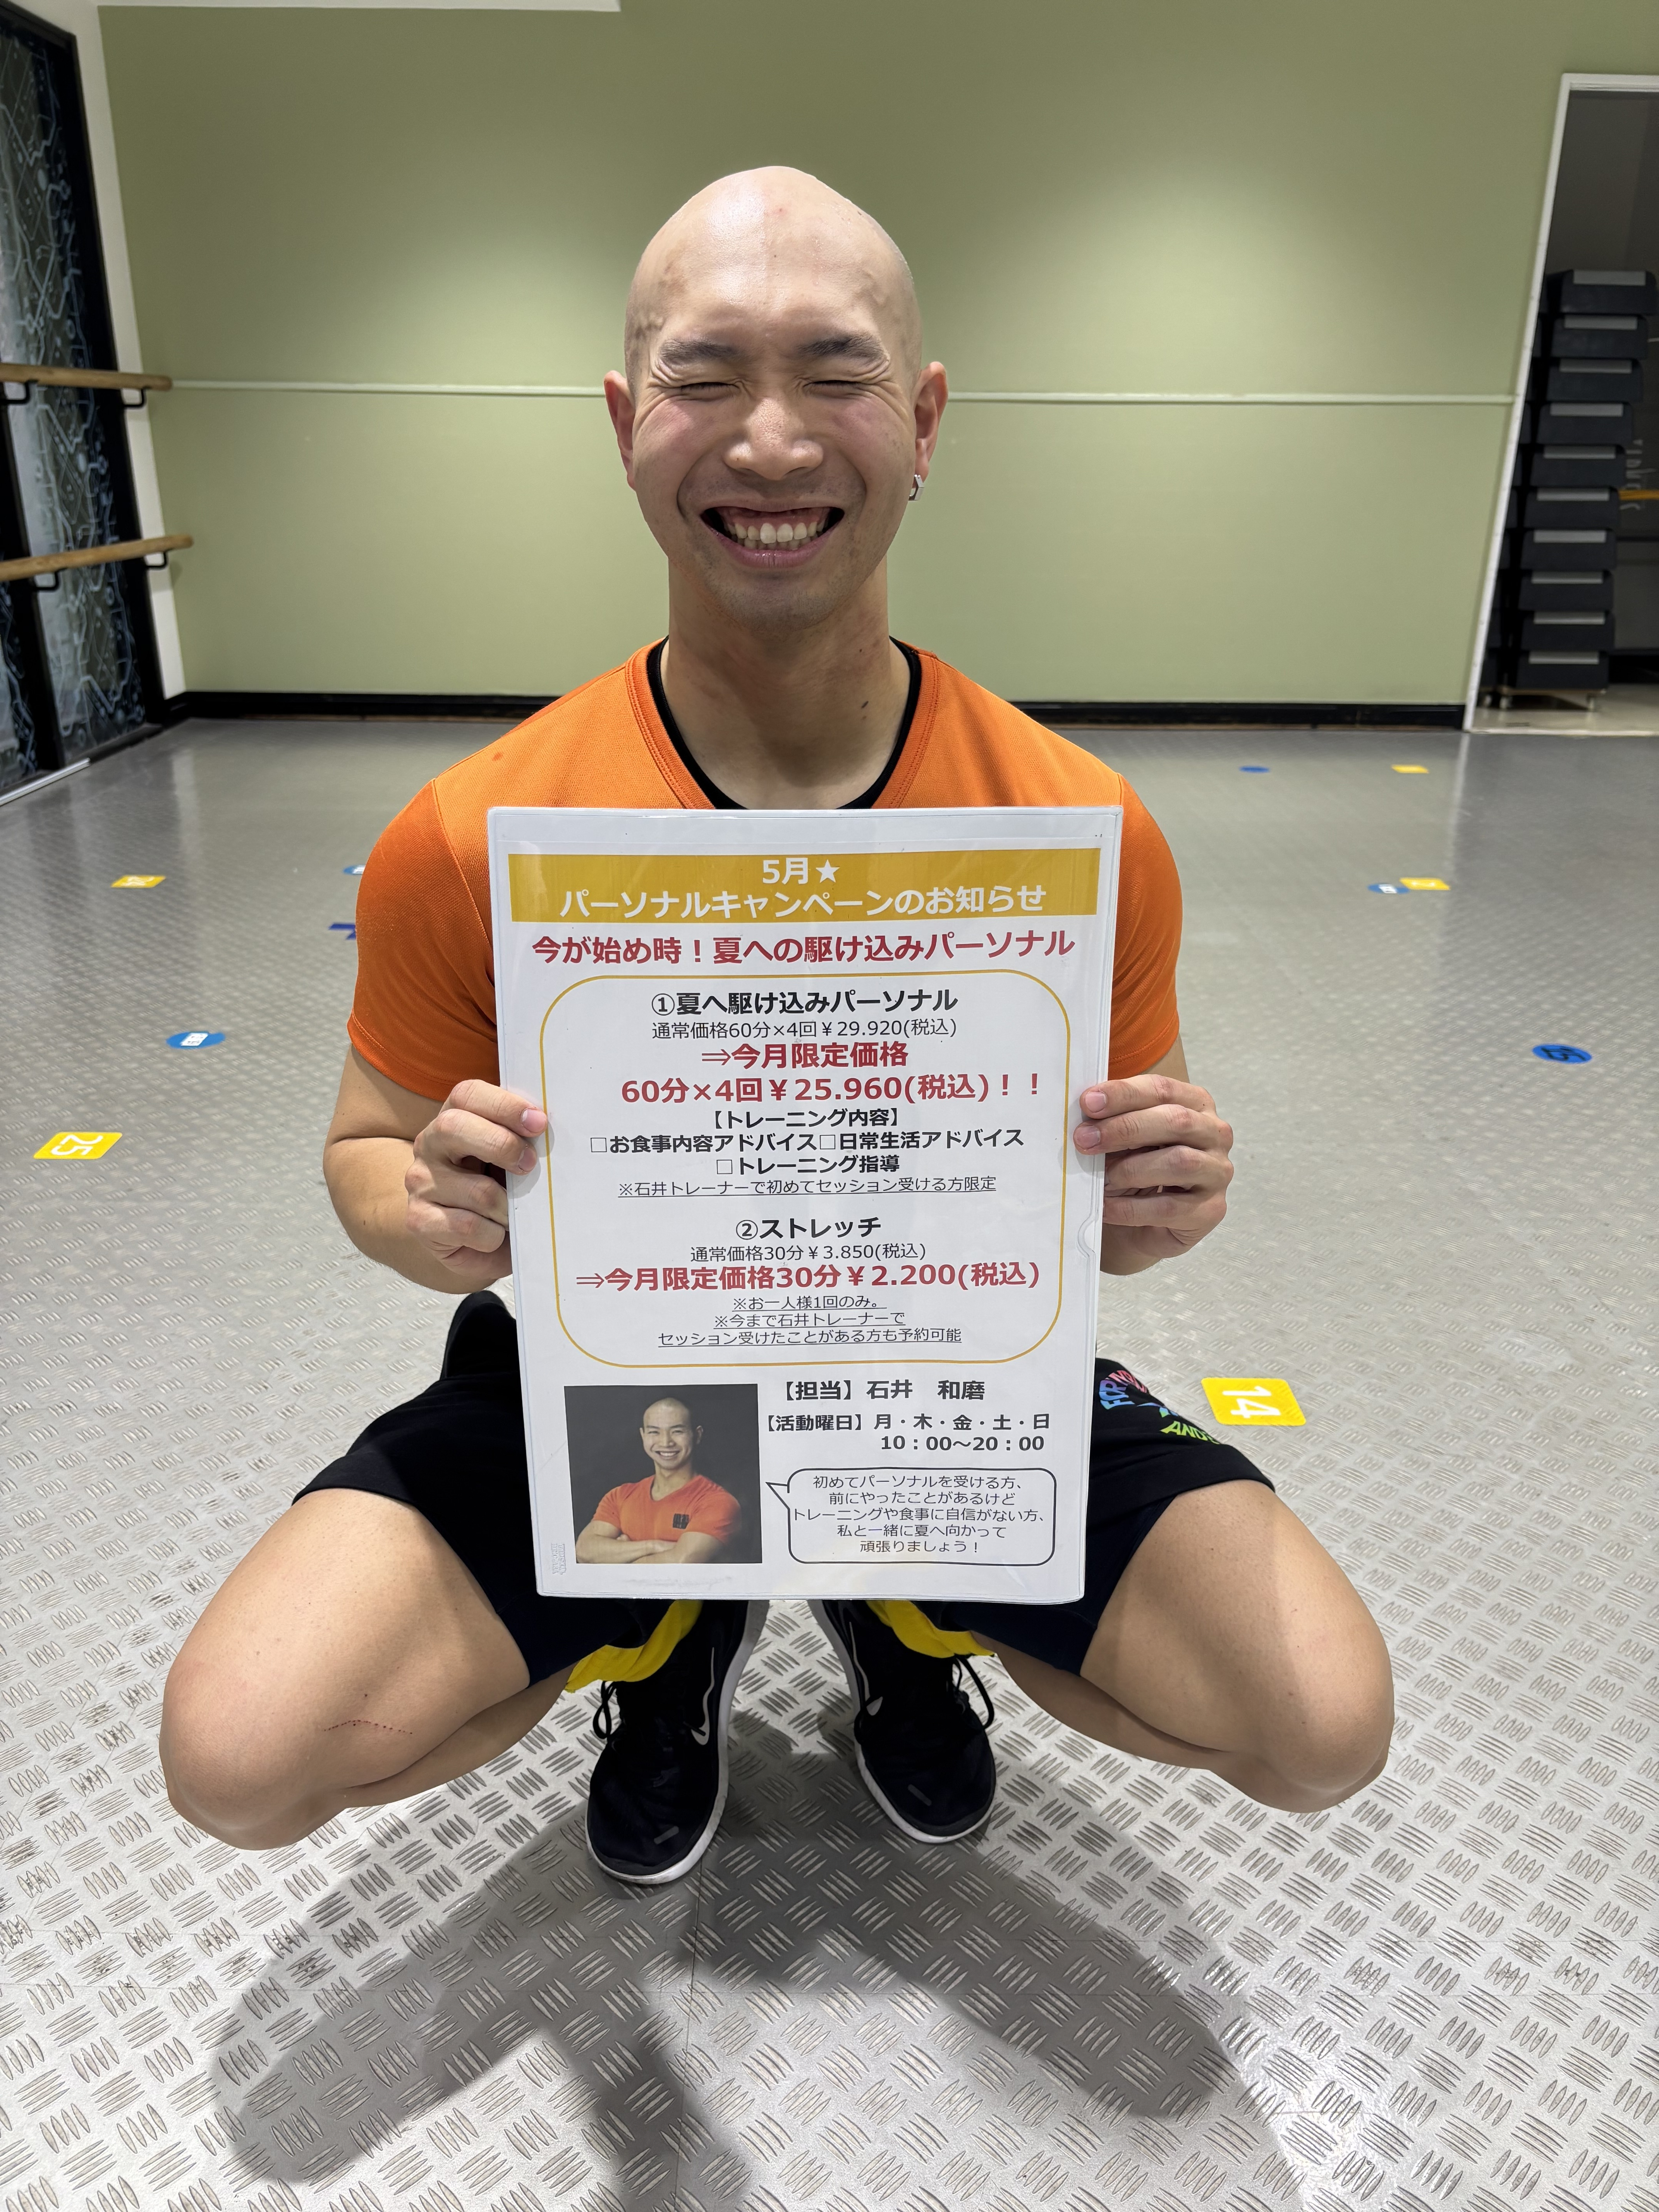 5月★
パーソナルキャンペーンのお知らせ
今が始め時！夏への駆け込みパーソナル
①夏へ駆け込みパーソナル
通常価格60分×4回￥29.920(税込)
⇒今月限定価格
60分×4回￥25.960(税込)！！
【トレーニング内容】
□お食事内容アドバイス□日常生活アドバイス
□トレーニング指導
※石井トレーナーで初めてセッション受ける方限定
②ストレッチ
通常価格30分￥3.850(税込)
⇒今月限定価格30分￥2.200(税込)
※お一人様1回のみ。
※今まで石井トレーナーで
セッション受けたことがある方も予約可能
【担当】石井　和磨
【活動曜日】月・木・金・土・日
10：00～20：00
初めてパーソナルを受ける方、
前にやったことがあるけど
トレーニングや食事に自信がない方、
私と一緒に夏へ向かって
頑張りましょう！
25
14